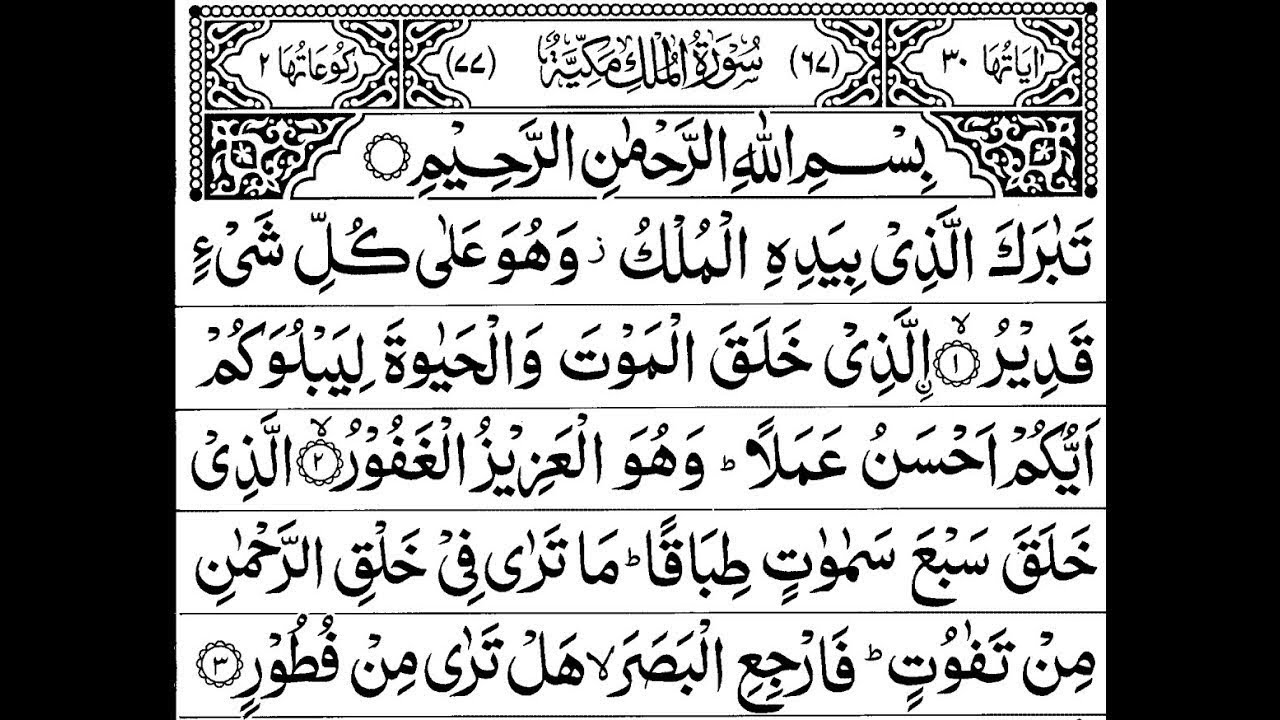 اٰيَاتُهَا ٣٠ (٦٧) سُوْرَةُ الْمُلْكِ مَكِّيَّةٌ (٧٧) رُكُوْعَاتُهَا ٢
بِسْمِ اللّٰهِ الرَّحْمٰنِ الرَّحِيْمِ
تَبٰرَكَ الَّذِيْ بِيَدِهِ الْمُلْكُ ز وَهُوَ عَلٰى كُلِّ شَيْءٍ
قَدِيْرُ ۙ ١ اۨلَّذِيْ خَلَقَ الْمَوْتَ وَالْحَيٰوةَ لِيَبْلُوَكُمْ
اَيُّكُمْ اَحْسَنُ عَمَلًا ؕ وَهُوَ الْعَزِيْزُ الْغَفُوْرُ ۙ ٢ الَّذِيْ
خَلَقَ سَبْعَ سَمٰوٰتٍ طِبَاقًا ؕ مَا تَرٰى فِيْ خَلْقِ الرَّحْمٰنِ
مِنْ تَفٰوُتٍ ؕ فَارْجِعِ الْبَصَرَ ۙ هَلْ تَرٰى مِنْ فُطُوْرٍ ٣